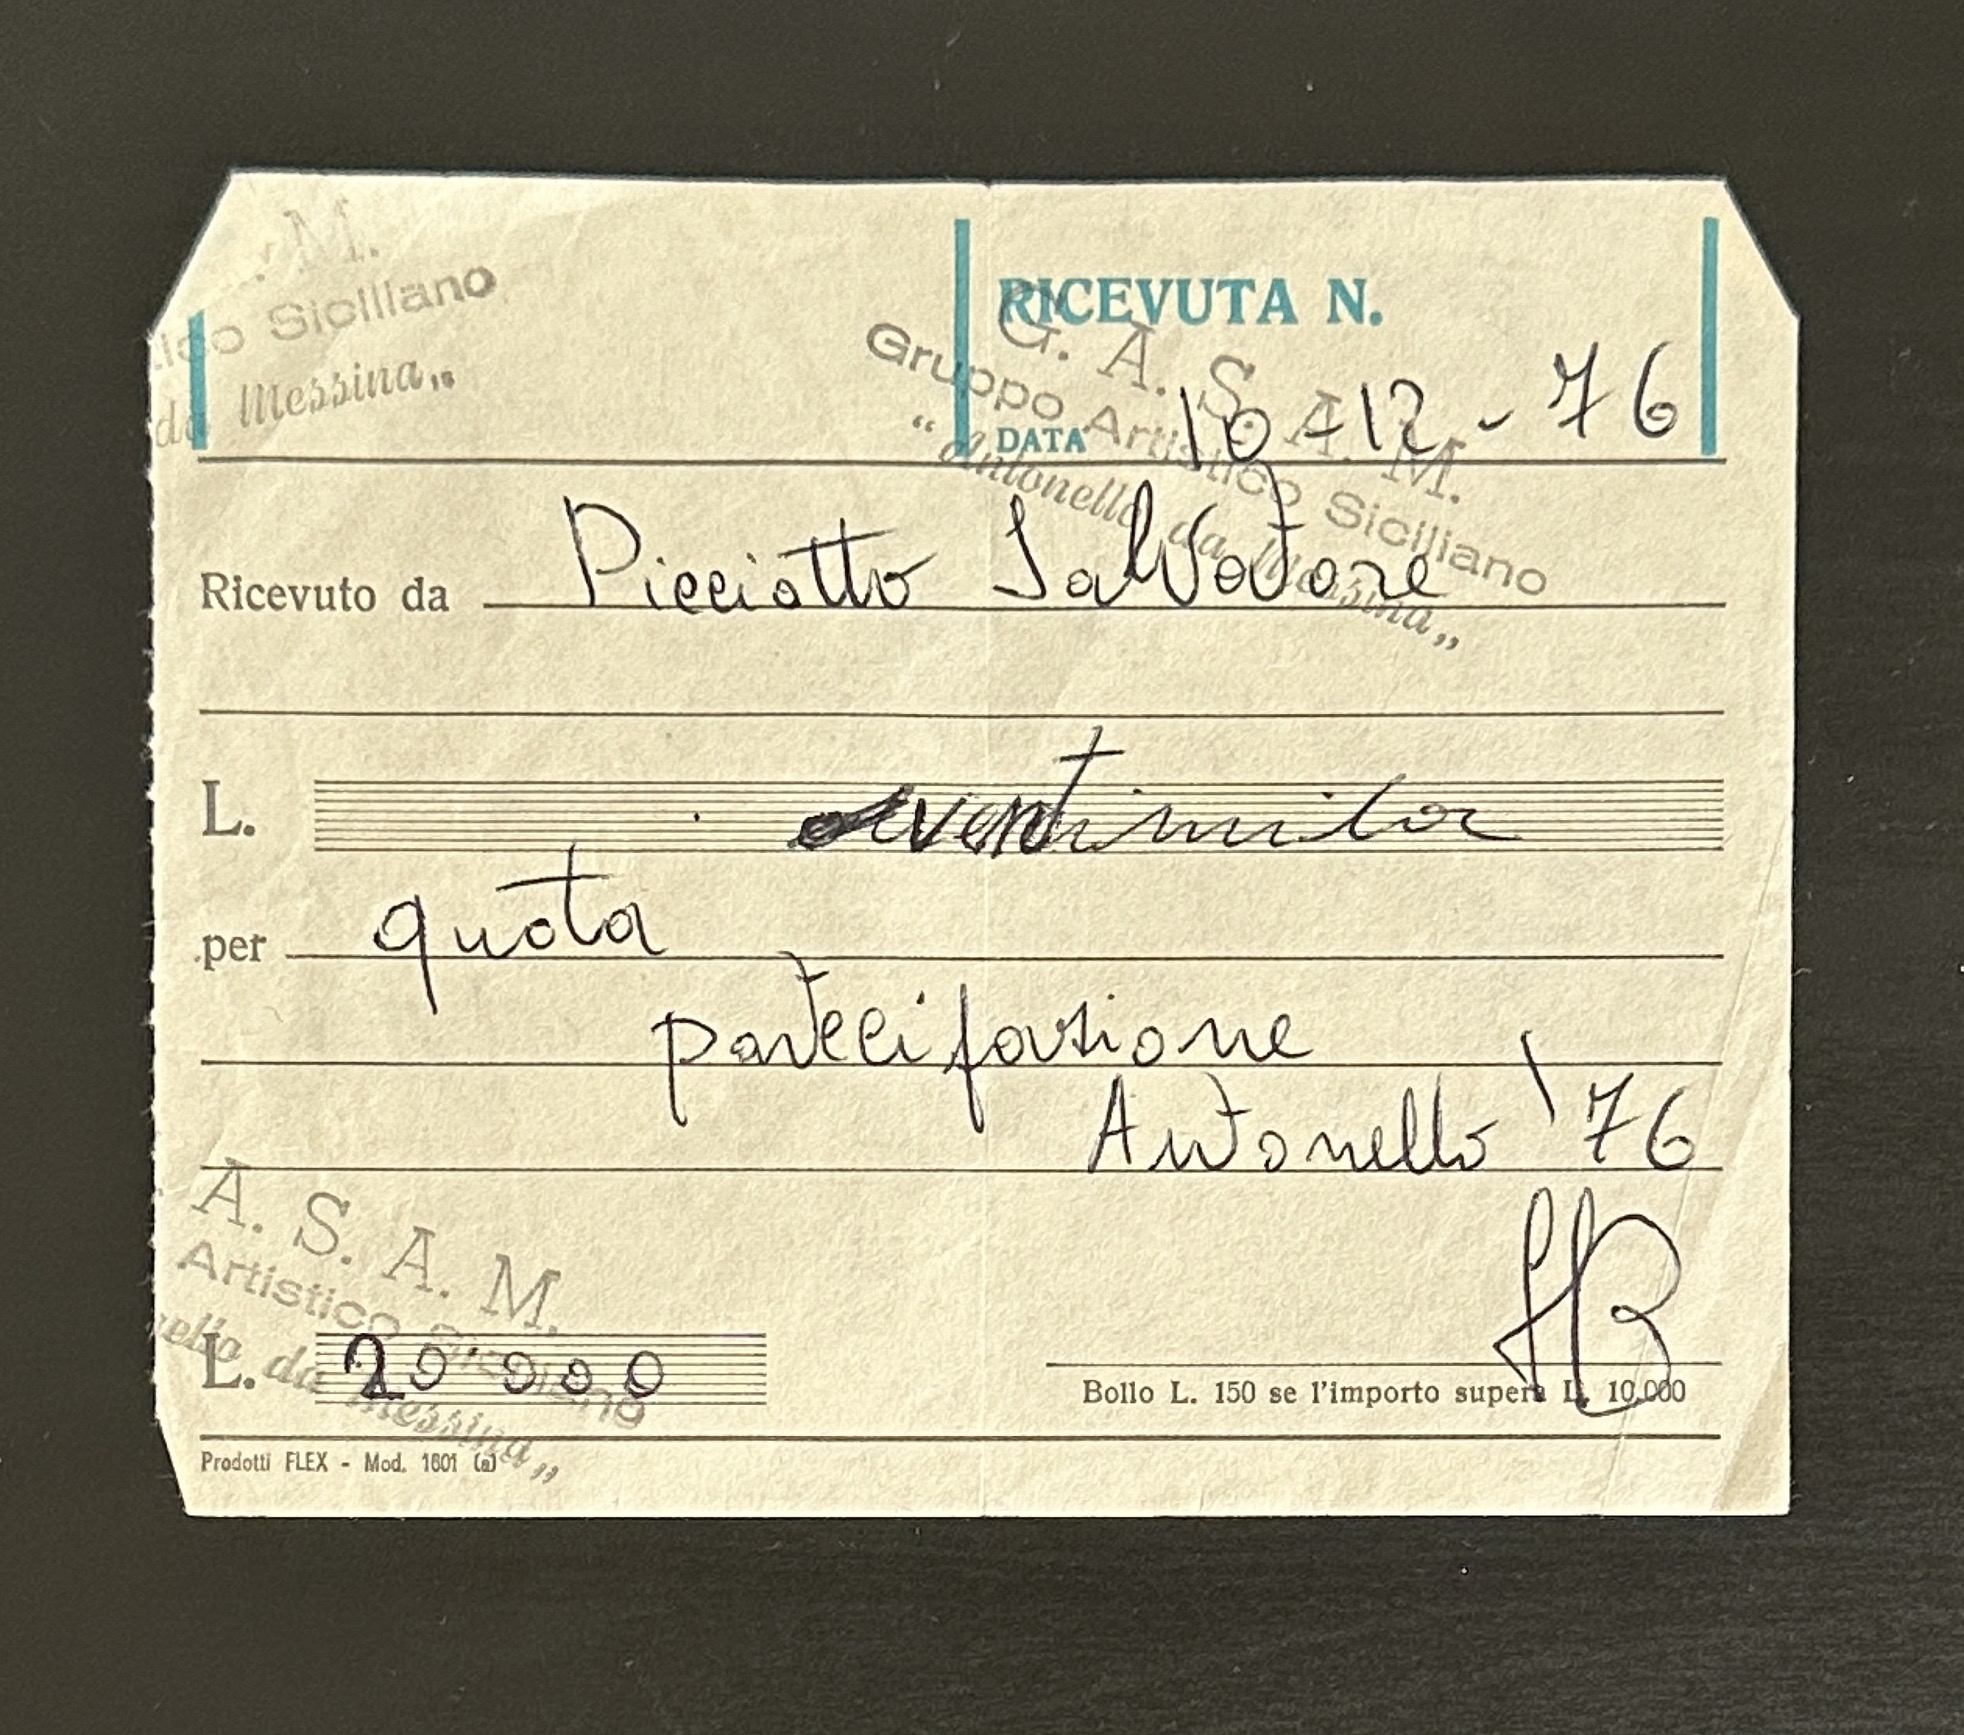 . M.
tico Siciliano
da Messina„
RICEVUTA N.
G. A. S. A. M.
Gruppo Artistico Siciliano
“Antonello da Messina„
DATA 10-12-76
Ricevuto da Picciotto Salvatore
L. ventimila
per quota
partecipazione
Antonello '76
A. S. A. M.
Artistico Siciliano
nello da Messina„
L. 20.000
Bollo L. 150 se l'importo supera L. 10.000
Prodotti FLEX - Mod. 1601 (a)